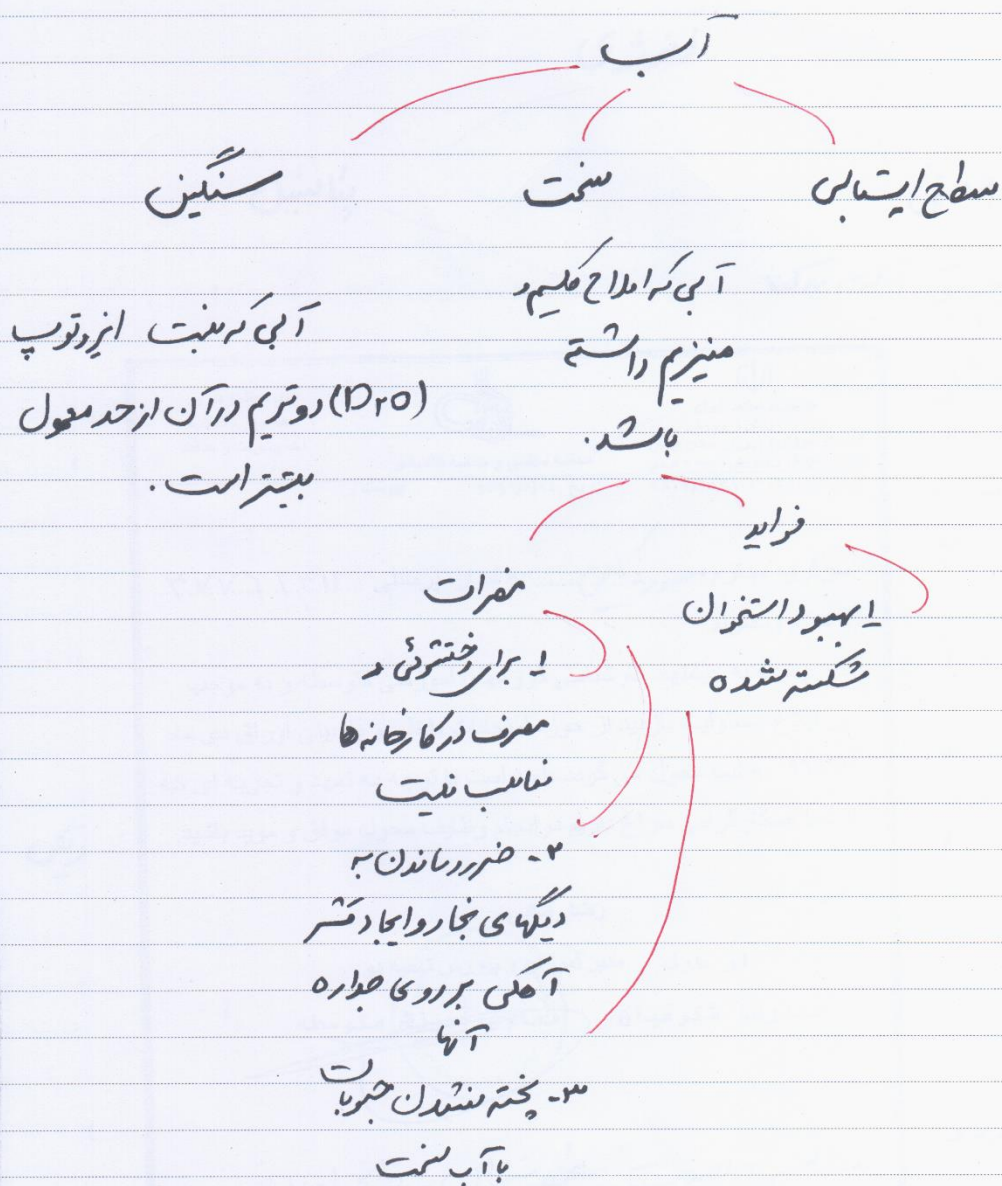 آب
سطح ایستابی
سخت
سنگین
آبی که املاح کلسیم و
منیزیم داشته
باشد.
آبی که نسبت ایزوتوپ
(D۲O) دوتریم در آن از حد معمول
بیشتر است.
فواید
۱ـ بهبود استخوان
شکسته شده
مضرات
۱ـ برای رختشوئی و
مصرف در کارخانه ها
مناسب نیست
۲ـ ضرر رساندن به
دیگهای بخار و ایجاد قشر
آهکی بر روی جداره
آنها
۳ـ پخته نشدن حبوبات
با آب سخت